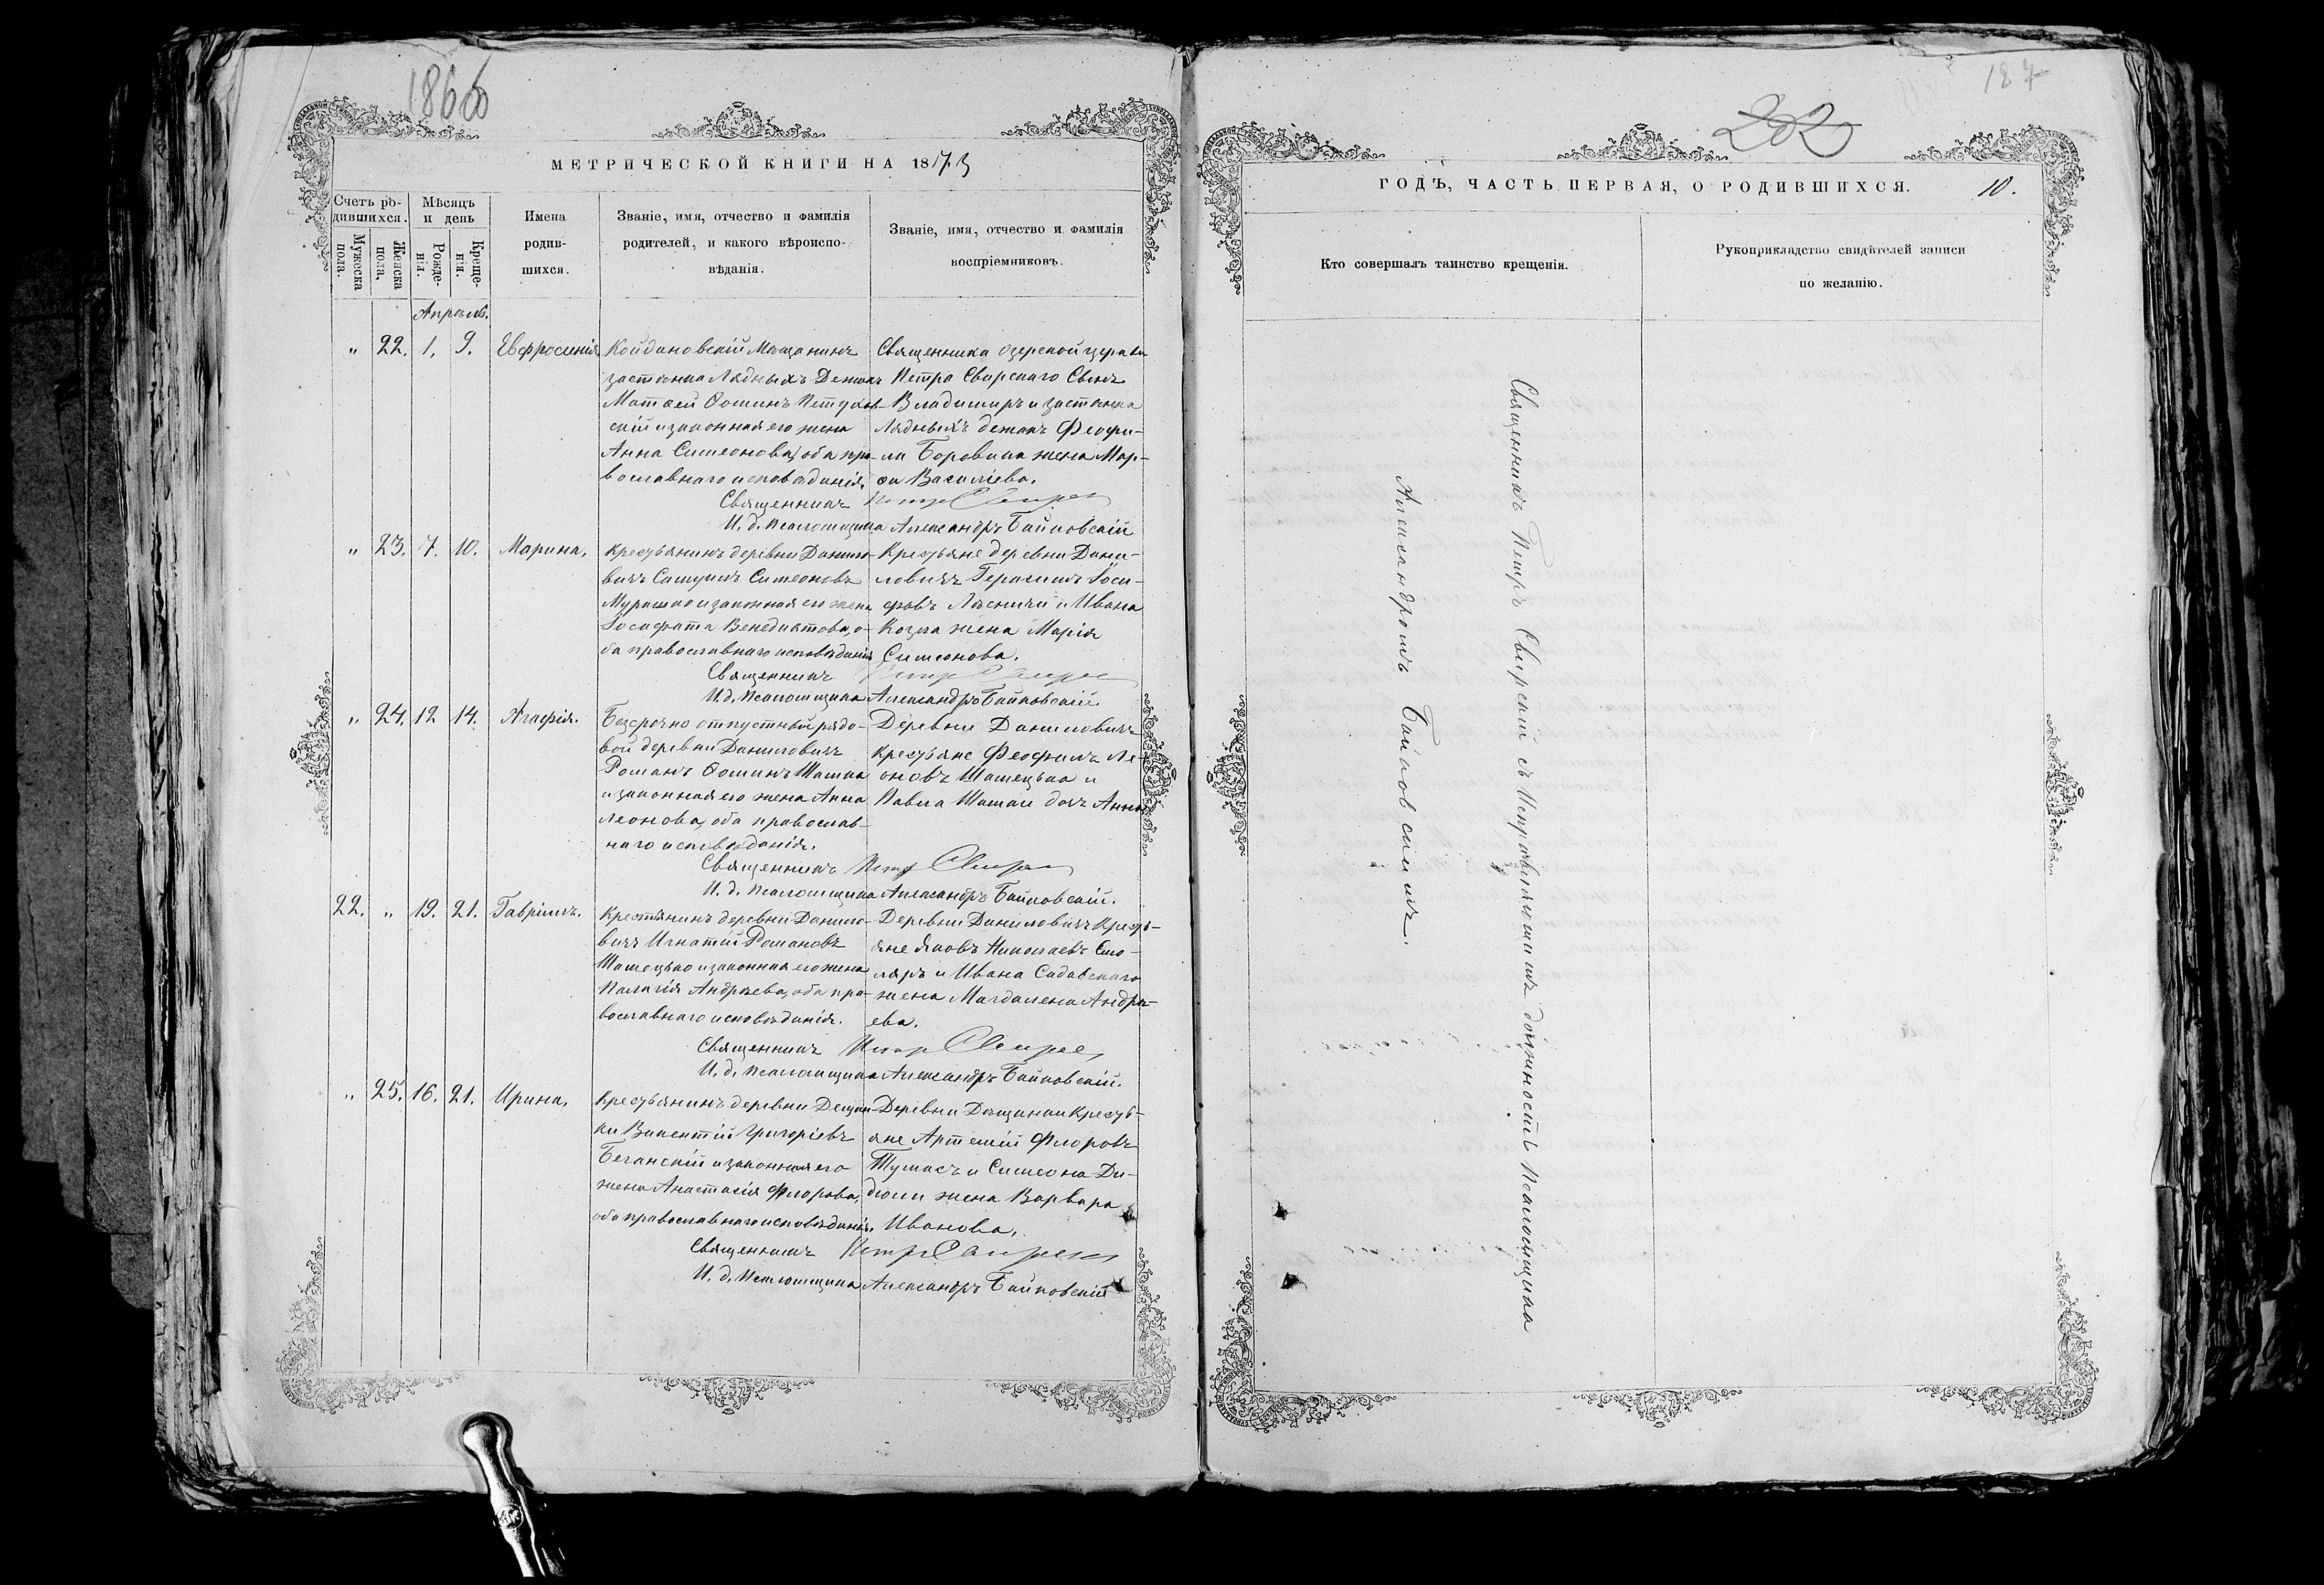 1866
МЕТРИЧЕСКОЙ КНИГИ НА 1873
Счетъ родившихся.
Мужеска пола.
Женска пола.
Мѣсяцъ и день
Рожденія.
Крещенія.
Имена родившихся.
Званіе, имя, отчество и фамилія родителей, и какого вѣроисповѣданія.
Званіе, имя, отчество и фамилія воспріемниковъ.
Апрѣль.
" 22. 1. 9. Евфросинія
Койдановскій Мѣщанинъ
застѣнка Лядныхъ
Матѳей Ѳоминъ
скій и законная его жена
Анна Симеонова, оба пра-
вославнаго исповѣданія.
Священника Озерской церкви
Петра Свирскаго Сынъ
Владимиръ и застѣнка
Лядныхъ Феофи-
ла Боровика жена Мар-
ѳа Василіева.
Священникъ Петръ Свирскій
И. д. Псаломщика Александръ Байковскій
" 23. 7. 10. Марина.
Крестьянинъ деревни Данило-
вичъ Симеоновъ
Мурашко и законная его жена
Іосафата Венедиктова, о-
ба православнаго исповѣданія
Крестьяне деревни Дани-
ловичъ Герасимъ Іоси-
фовъ и Ивана
Козла жена Марія
Симеонова.
Священникъ Петръ Свирскій
И. д. Псаломщика Александръ Байковскій.
" 24. 12 14. Агафія.
Безсрочно отпустный рядо-
вой деревни Даниловичъ
Романъ Ѳоминъ
и законная его жена Анна
Леонова, оба православ-
наго исповѣданія.
Деревни Даниловичъ
крестьяне Феофилъ Ле-
оновъ Шатецько и
Павла дочь Анна
Священникъ Петръ Свирскій
И. д. Псаломщика Александръ Байковскій.
22. " 19. 21. Гавріилъ.
Крестьянинъ деревни Данило-
вичъ Игнатій Романовъ
Шатецько и законная его жена
Палагія Андреева, оба пра-
вославнаго исповѣданія.
Деревни Даниловичъ кресть-
яне Яковъ Николаевъ Сто-
ляръ и Ивана Садовскаго
жена Магдалена Андре-
ева.
Священникъ Петръ Свирскій
И. д. Псаломщика Александръ Байковскій.
" 25. 16. 21. Ирина.
Крестьянинъ деревни Дещин-
ки Викентій Григоріевъ
Беганскій и законная его
жена Анастасія Флорова,
оба православнаго исповѣданія.
Деревни Дещинки кресть-
яне Артемій Флоровъ
и Симеона Ди-
дюли жена Варвара
Иванова.
Священникъ Петръ Свирскій
И. д. Псаломщика Александръ Байковскій
187
202
ГОДЪ, ЧАСТЬ ПЕРВАЯ, О РОДИВШИХСЯ. 10.
Кто совершалъ таинство крещенія.
Рукоприкладство свидѣтелей записи по желанію.
Священникъ Петръ Свирскій съ Исправляющимъ должность Псаломщика
Александромъ Байковскимъ.